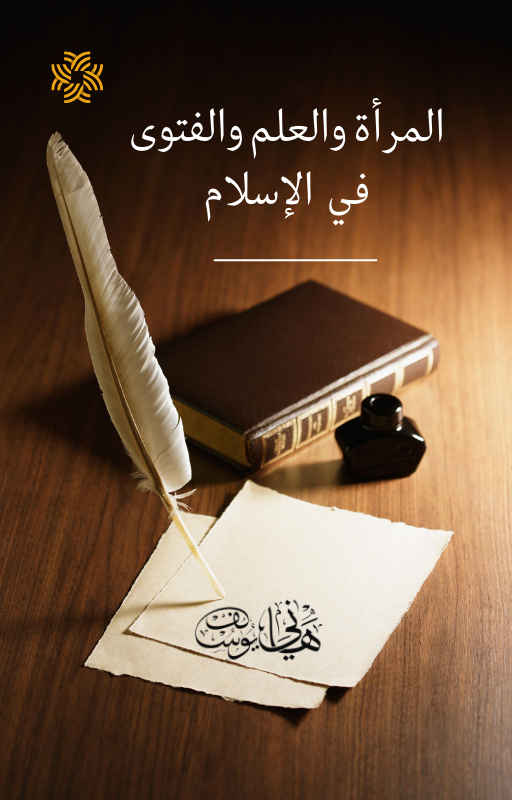 المرأة والعلم والفتوى
في الإسلام
هاني يوسف